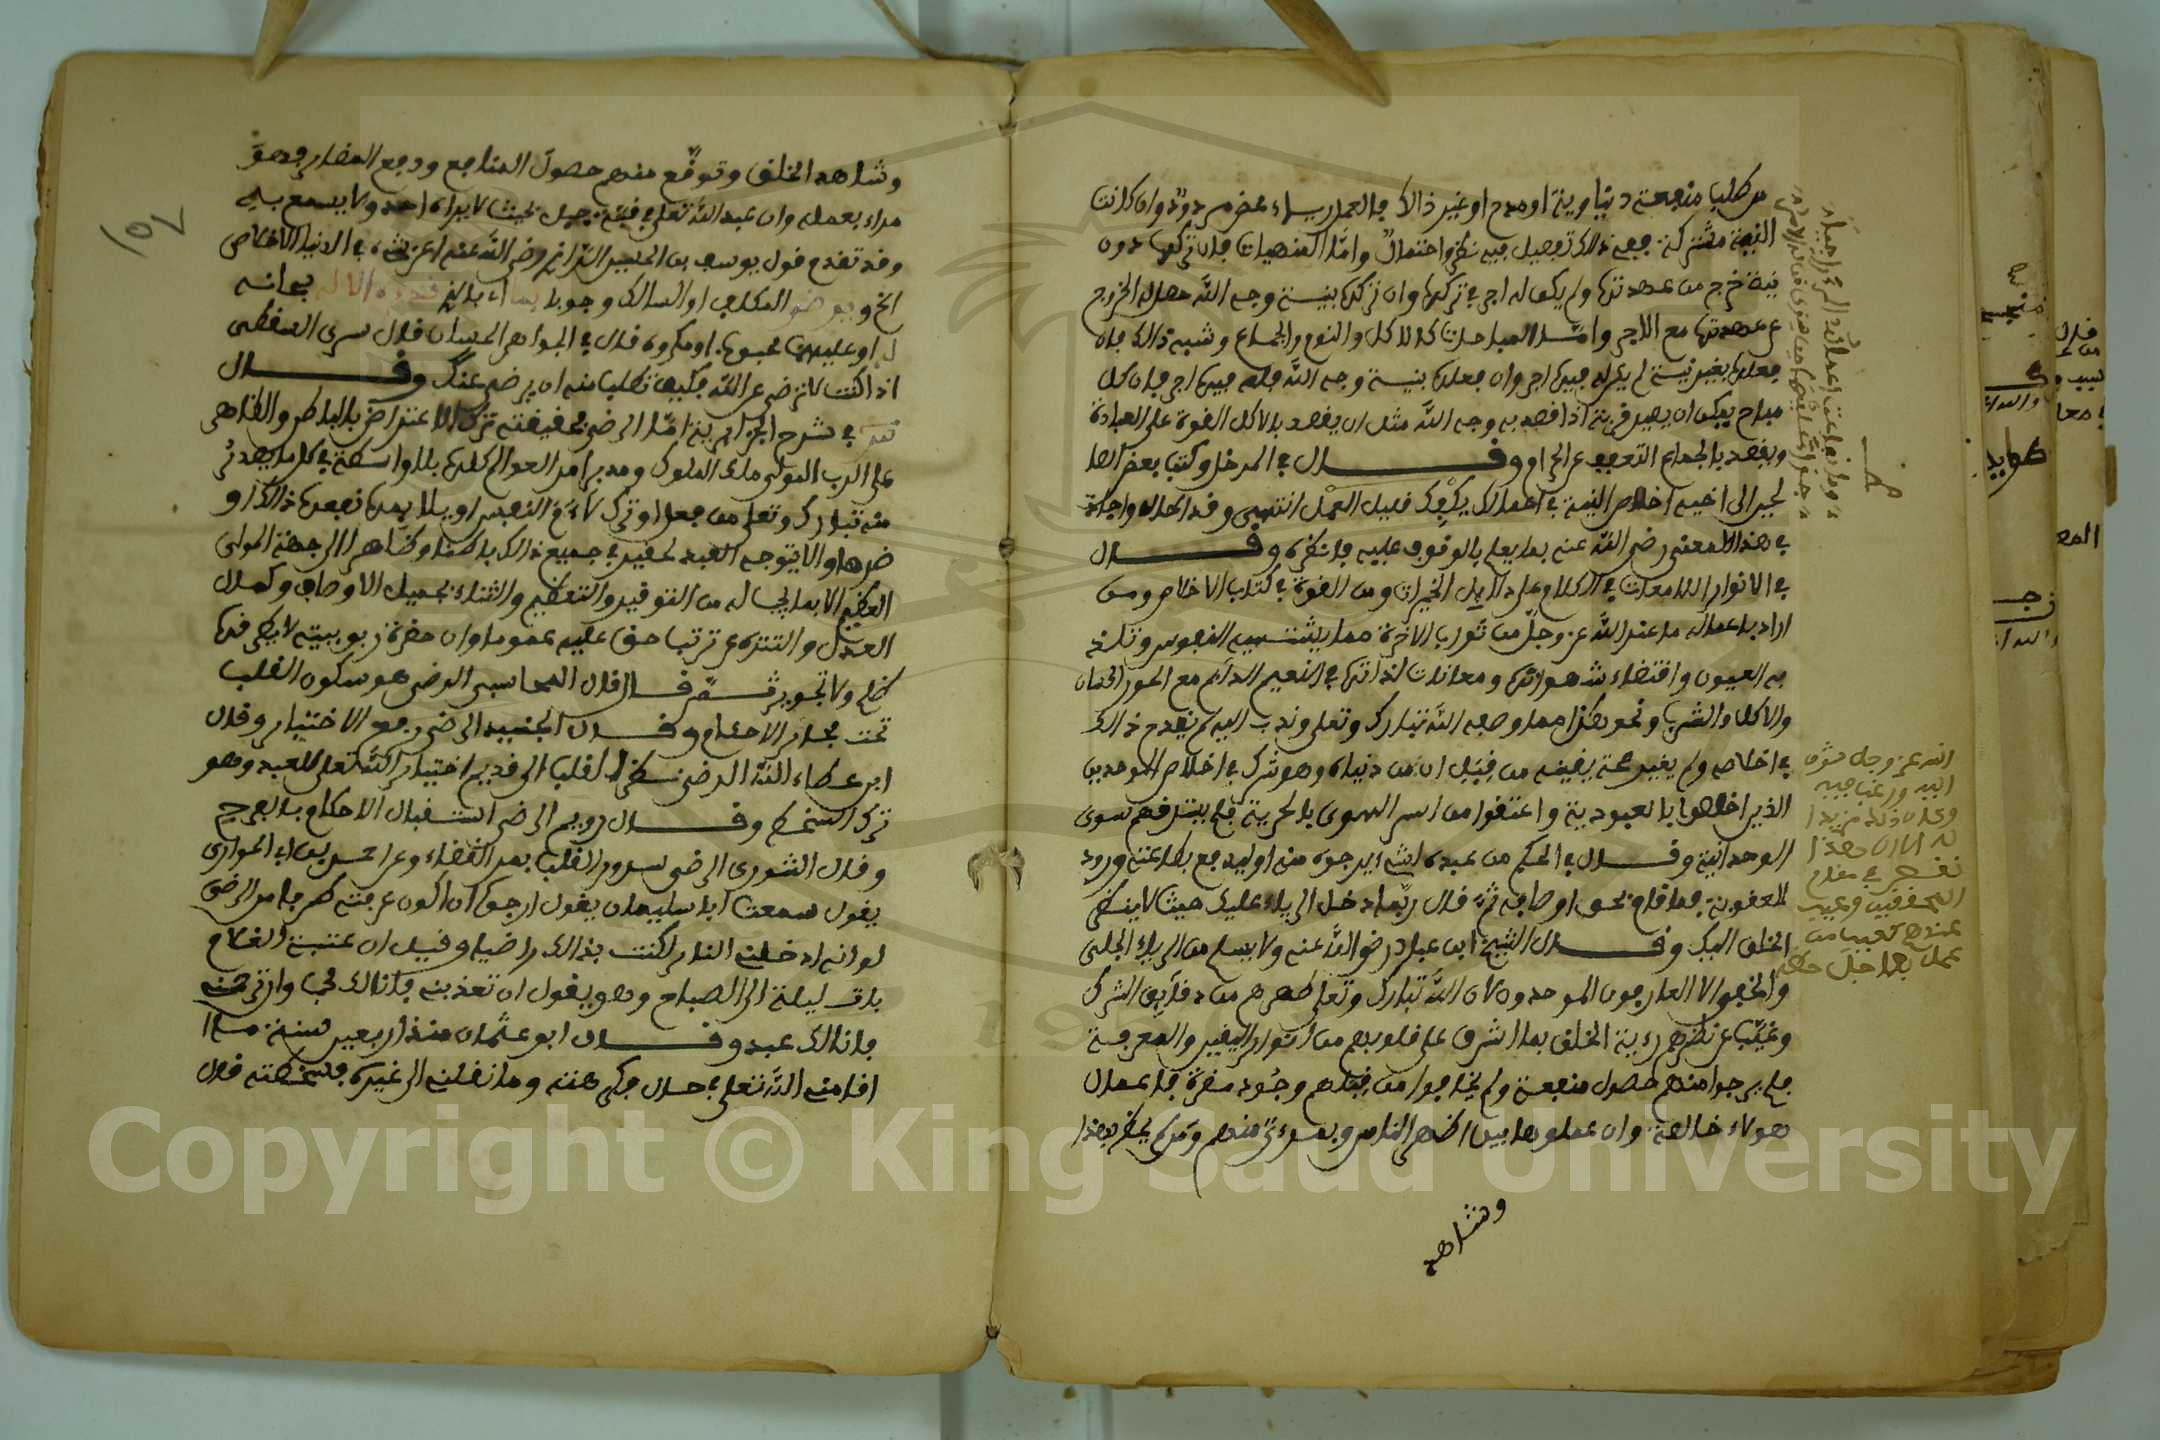 من طلب منفعة دنياوية او مدح او غير ذالك فالعمل رياء محض مردود وان كانت
النية مشتركة ففي ذالك تفصيل فيه نظر واحتمال واما المنهيات فان تركها دون
نية خرج من عهدتها ولم يكن له اجر في تركها وان تركها بنية وجه الله حصل له الخروج
عن عهدتها مع الاجر وامـــا المباحات كالاكل والنوم والجماع وشبه ذالك فان
فعلها بغير نية لم يكن له فيها اجر وان فعلها بنية وجه الله فله فيها اجر فان كل
مباح يمكن ان يصير قربة اذا قصد به وجه الله مثل ان يقصد بالاكل القوة على العبادة
ويقصد بالجماع التعفف عن الحرام وقـــال في المدخل وكتب بعض الصا
لحين الى اخيه اخلص النية في اعمالك يكفك قليل العمل انتهى وقد اطال واجاد
في هذا المعنى رضي الله عنه بما يعلم بالوقوف عليه فانظره وقـــال
في الانوار اللامعات في الكلام على دلايل الخيرات ومن القوة في كتاب الاخلاص ومن
اراد باعماله ما عند الله عز وجل من ثواب الاخرة مما يشتهيه النفوس وتلذ
به العيون واقتضاء شهواتها ومعانات لذاتها في النعيم الدائم مع الحور الحسان
والاكل والشرب ونحو هذا مما وصفه الله تبارك وتعلى وندب اليه لم يقدح ذالك
في اخلاصه ولم يغير صحة يقينه من قبل ان من دنياه وهو شرك في اخلاص الموحدين
الذين اخلصوا بالعبودية واعتقوا من اسر الهوى بالحرية فلم يسترقهم سوى
الوحدانية وقـــال في الحكم من عبده لشيء يرجوه منه او ليدفع بطاعته ورود
العقوبة فما قام بحق اوصافه ثم قال ربما دخل الرياء عليك حيث لا ينظر
الخلق اليك وقـــال الشيخ ابن عباد رضي الله عنه ولا يسلم من الرياء الجلي
والخفي الا العارفون الموحدون لان الله تبارك وتعلى طهرهم من دقايق الشرك
وغيب عن نظرهم رءية الخلق بما اشرق على قلوبهم من انوار اليقين والمعرفة
فلم يرجوا منهم حصول منفعة ولم يخافوا من قبلهم وجود مضرة فاعمال
هولاء خالصة وان عملوها بين اظهر الناس وبمرءى منهم ومن لم يحظ بهذا
وشاهد
الله عز وجل شوق
اليه ورغب فيه
وكان ذلك مزيدا
له الا ان هذا
نقص في مقام
المحققين وعيب
عندهم كعيب من
عمل لعاجل حظه
١٥٧
وشاهد الخلق وتوقع منهم حصول المنافع ودفع المضار فهو
مراء بعمله وان عبد الله تعلى في قنة جبل بحيث لا يراه احد ولا يسمع به
وقد تقدم قول يوسف بن الحسين الرازي رضي الله عنه اعز شيء في الدنيا الاخلاص
الخ ويرضى المكلف او السالك وجوبا بما الاله سبحانه
له او عليه محبوب او مكروه قال في الجواهر الحسان قال سري السقطي
اذا كنت لا ترضى عن الله فكيف تطلب منه ان يرضى عنك وقـــال
في شرح الجزايرية اما الرضى فحقيقته ترك الاعتراض بالباطن والظاهر
على الرب المولى ملك الملوك ومدبر امر العوالم كلها بلا واسطة في كل ما يصدر
منه تبارك وتعلى من فعل او ترك لاءم النفس او يلايمها نفعها ذالك او
ضرها والا يتوجه العبد الحقير في جميع ذالك باطنا وظاهرا الى جهة المولى
العظيم الا بما يجب له من التوقير والتعظيم والثناء بجميل الاوصاف وكمال
العدل والتنزه عن ترتب حق عليه عموما وان حضرة ربوبيته لا يطرقها
ظلم ولا تجوير ثـــم قـــال قال المحاسبي الرضى هو سكون القلب
تحت مجاري الاحكام وقـــال الجنيد الرضى رفع الاختيار وقال
ابن عطاء الله الرضى نظر القلب الى قديم اختيار الله تعلى للعبد وهو
ترك السخط وقـــال رويم الرضى استقبال الاحكام بالفرح
وقال النوري الرضى سرور القلب بمر القضاء وعن احمد بن ابي الحوارى
يقول سمعت ابا سليمان يقول ارجو ان اكون عرفت طرفا من الرضى
لو انه ادخلني النار لكنت بذالك راضيا وقيل ان عتبة الغلام
بات ليلة الى الصباح وهو يقول ان تعذبني فانا لك محب وان ترحمني
فانا لك عبد وقـــال ابو عثمان منذ اربعين سنة ما
اقامني الله تعلى في حال فكرهته وما نقلني الى غيره فسخطته قال
Copyright © King Saud University